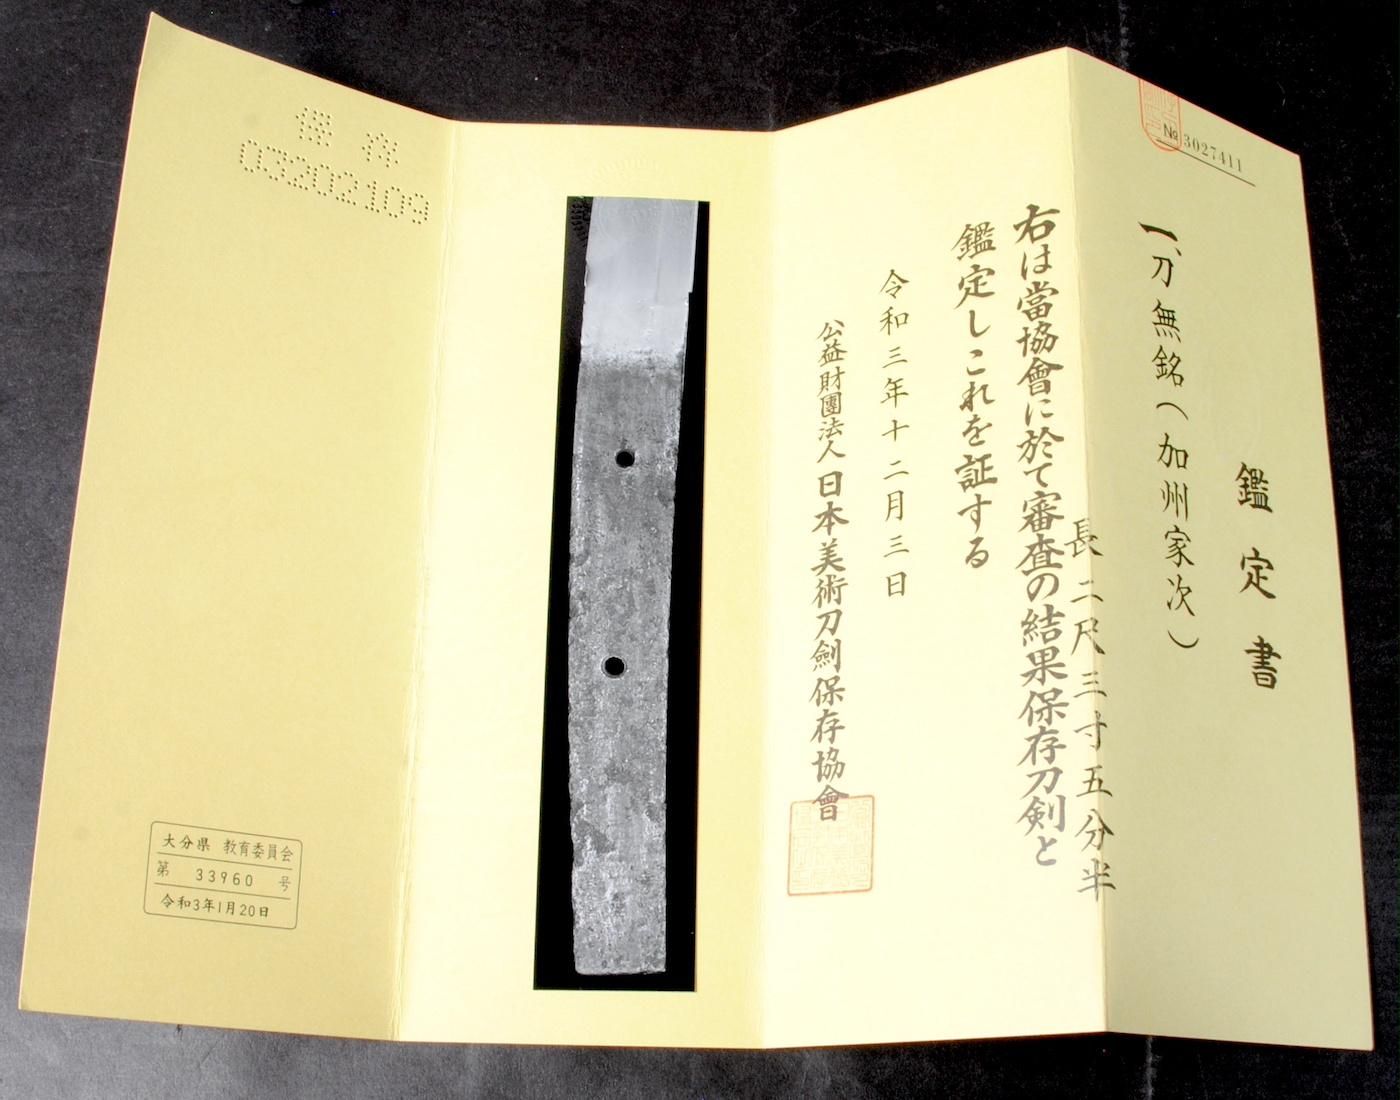 № 3027411
鑑定書
一、刀 無銘(加州家次)
長 二尺三寸五分半
右は當協會に於て審査の結果保存刀剣と
鑑定しこれを証する
令和三年十二月三日
公益財團法人 日本美術刀劍保存協會
保存
03202109
大分県 教育委員会
第 33960 号
令和3年1月20日